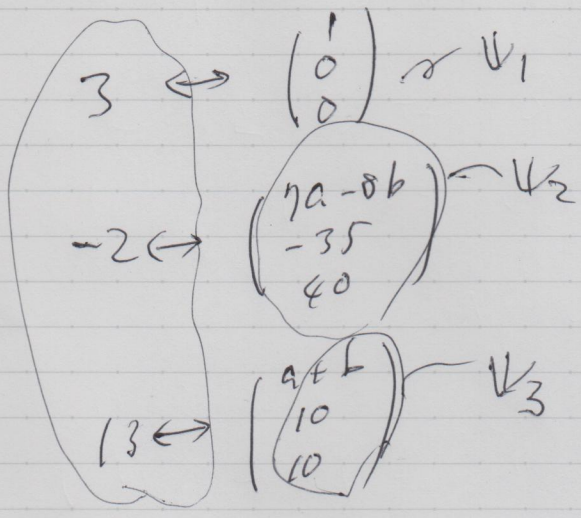 3 ↔ (1 0 0) ψ1
-2 ↔ (7a-8b -35 40) ψ2
13 ↔ (a+b 10 10) ψ3